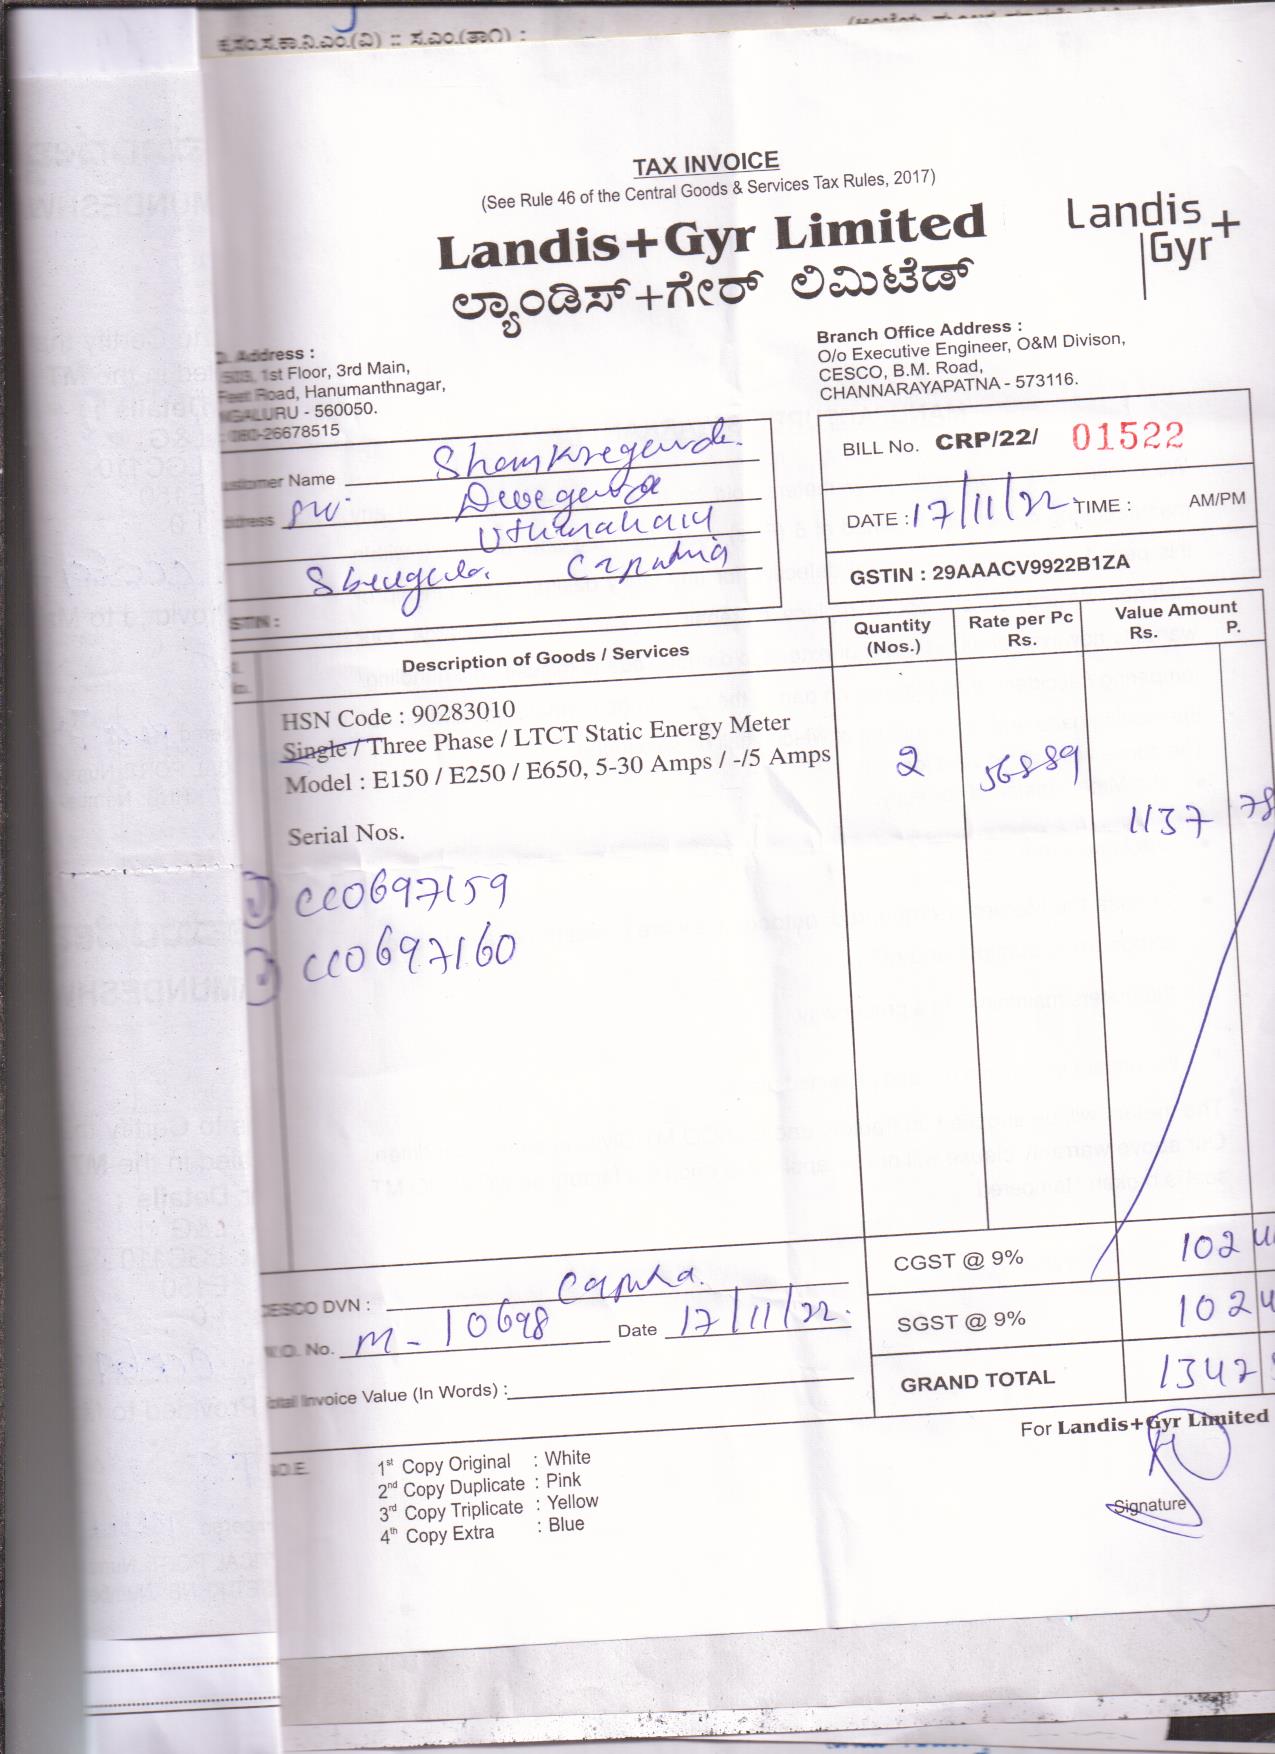 ಕೃ.ಸಂ.ಸ.ಕಾ.ನಿ.ಎಂ.(ವಿ) :: ಸ.ಎಂ.(ತಾಂ) :
TAX INVOICE
(See Rule 46 of the Central Goods & Services Tax Rules, 2017)
Landis+Gyr Limited
ಲ್ಯಾಂಡಿಸ್+ಗೇರ್ ಲಿಮಿಟೆಡ್
Landis
Gyr+
Address :
1st Floor, 3rd Main,
Feet Road, Hanumanthnagar,
NGALURU - 560050.
080-26678515
Branch Office Address :
O/o Executive Engineer, O&M Divison,
CESCO, B.M. Road,
CHANNARAYAPATNA - 573116.
ustomer Name
ddress
STIN :
BILL No. CRP/22/ 01522
DATE : 17/11/22 TIME : AM/PM
GSTIN : 29AAACV9922B1ZA
Description of Goods / Services
Quantity (Nos.)
Rate per Pc Rs.
Value Amount Rs. P.
HSN Code : 90283010
Single / Three Phase / LTCT Static Energy Meter
Model : E150 / E250 / E650, 5-30 Amps / -/5 Amps
2 56889 1137 78
Serial Nos.
1) CC0697159
2) CC0697160
CGST @ 9% 102
SGST @ 9% 102
GRAND TOTAL 1347
CESCO DVN :
W.O. No. M-10698 Date 17/11/22.
Total Invoice Value (In Words) :
For Landis+Gyr Limited
Signature
E.&O.E.
1st Copy Original : White
2nd Copy Duplicate : Pink
3rd Copy Triplicate : Yellow
4th Copy Extra : Blue